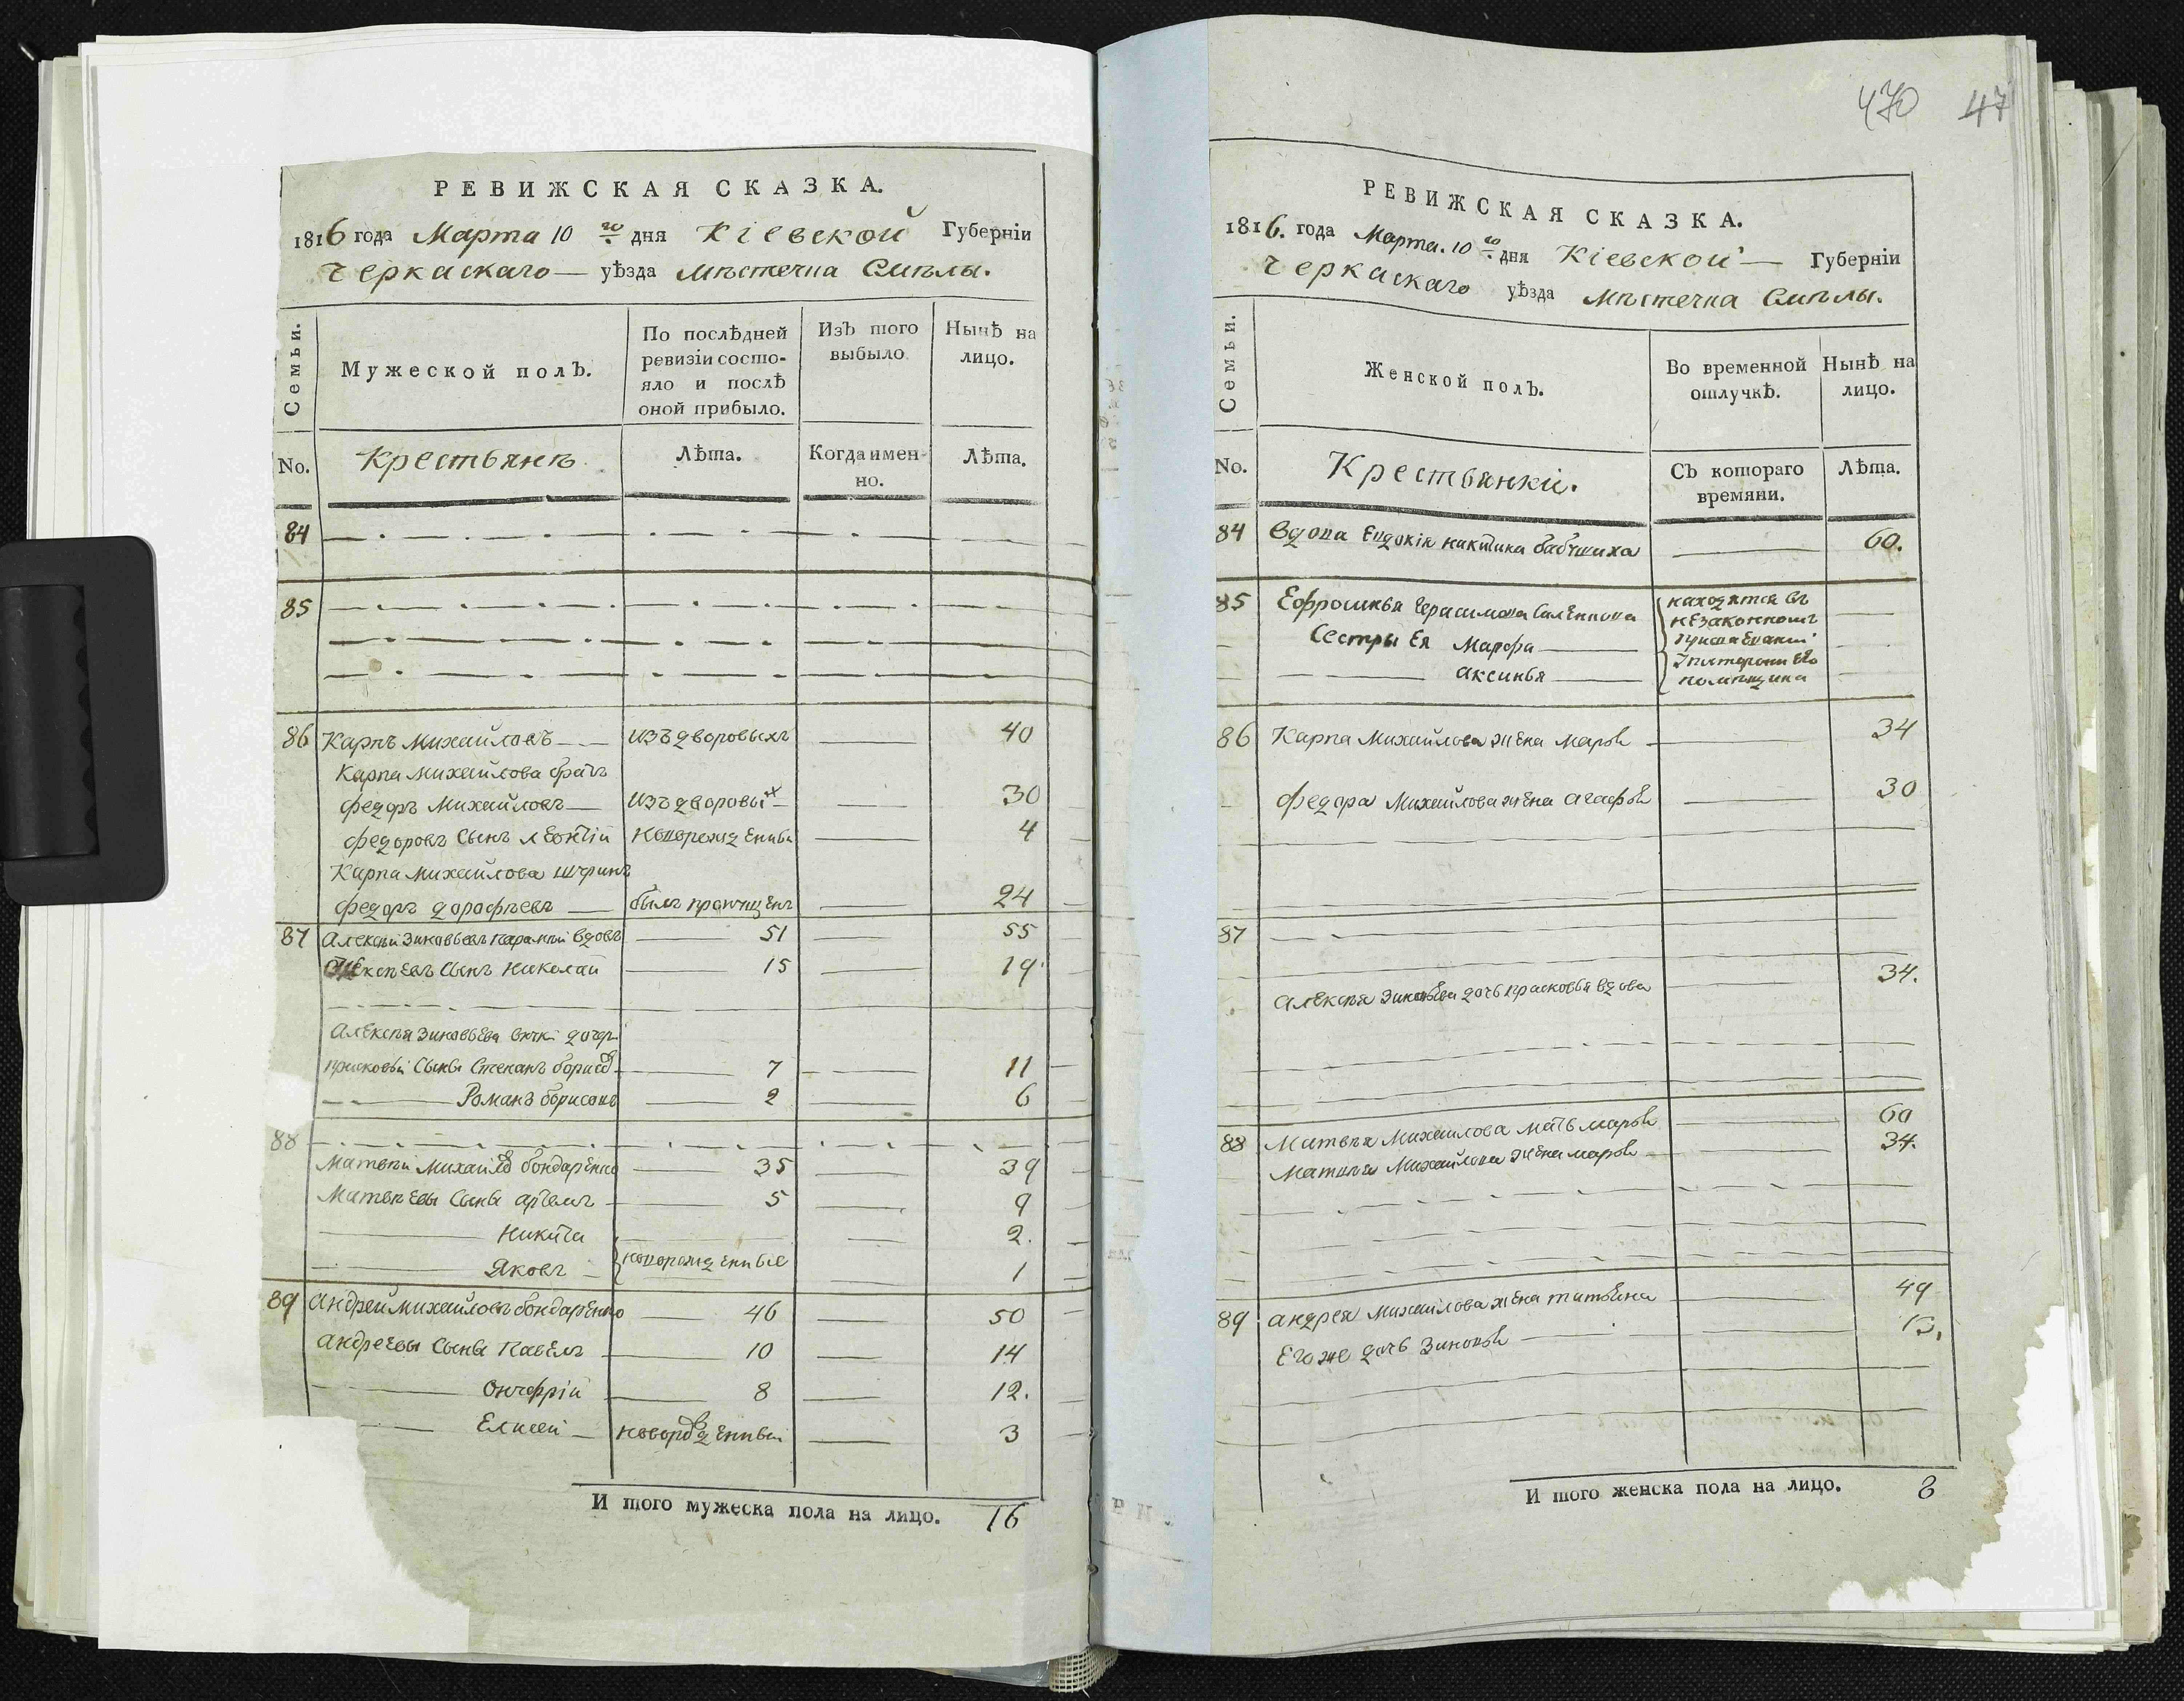 РЕВИЖСКАЯ СКАЗКА.
1816 года Марта 10 го дня Кіевской Губерніи
Черкаскаго уѣзда Мѣстечка Смѣлы.
Семьи.
Мужеской полъ.
По послѣдней ревизіи состояло и послѣ оной прибыло.
Изъ того выбыло.
Нынѣ на лицо.
No.
Крестьянъ
Лѣта.
Когда именно.
Лѣта.
84
85
86 Карпъ Михайловъ изъ дворовыхъ 40
Карпа Михайлова братъ
Федоръ Михайловъ изъ дворовых 30
Федоровъ Сынъ Леонтій новорожденный 4
Карпа Михайлова шуринъ
Федоръ Дорофѣевъ былъ пропущенъ 24
87 Алексѣй Зиновьевъ вдовъ 51 55
Алексѣевъ Сынъ Николай 15 19
Алексѣя Зиновьева внуки дочери
прасковьи Сыны Степанъ борисов 7 11
Романъ борисовъ 2 6
88
Матвѣй Михайлов бондаренко 35 39
Матвѣевы Сыны артемъ 5 9
Никита 2.
Яковъ новорожденные 1
89 Андрей Михайловъ бондаренко 46 50
Андреевы Сыны Павелъ 10 14
Онуфрій 8 12.
Елисей новорожденный 3
И того мужеска пола на лицо. 16
470 47
РЕВИЖСКАЯ СКАЗКА.
1816. года Марта. 10 го дня Кіевской Губерніи
Черкаскаго уѣзда Мѣстечка Смѣлы.
Семьи.
Женской полъ.
Во временной отлучкѣ.
Нынѣ на лицо.
No.
Крестьянки.
Съ котораго времяни.
Лѣта.
84 Вдова Евдокія бабушиха 60.
85 Ефросинья Герасимова
Сестры Ея Марфа
Аксинья
находятся въ
незаконном
помѣщика
86 Карпа Михайлова жена Марья 34
Федора Михайлова жена Агафья 30
87
Алексѣя Зиновьева дочь прасковья вдова 34.
88 Матвѣя Михайлова мать марья 60
Матвѣя Михайлова жена марья 34.
89 Андрея Михайлова жена татьяна 49
Его же дочь Зиновья
И того женска пола на лицо. 8